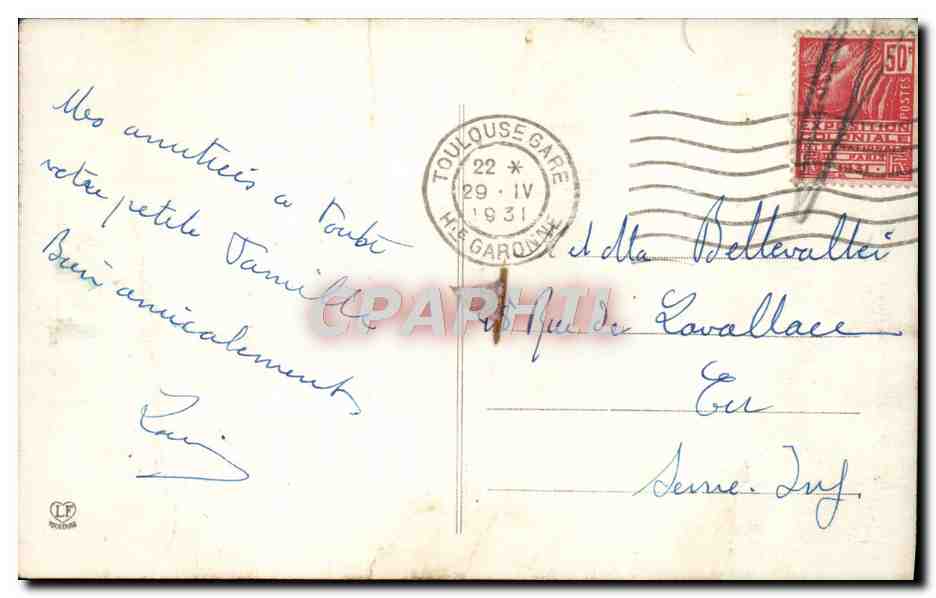 Mes amitiés a toute
votre petite famille
Bien amicalements
Louis
LF
TOULOUSE GARE
22 *
29 • IV
1931
Hte GARONNE
50c
POSTES
EXPOSITION
COLONIALE
INTERNATIONALE
PARIS
1931
et Mme Bellevallei
Rue de Lavallace
Eu
Seine-Inf
CPAPHIL